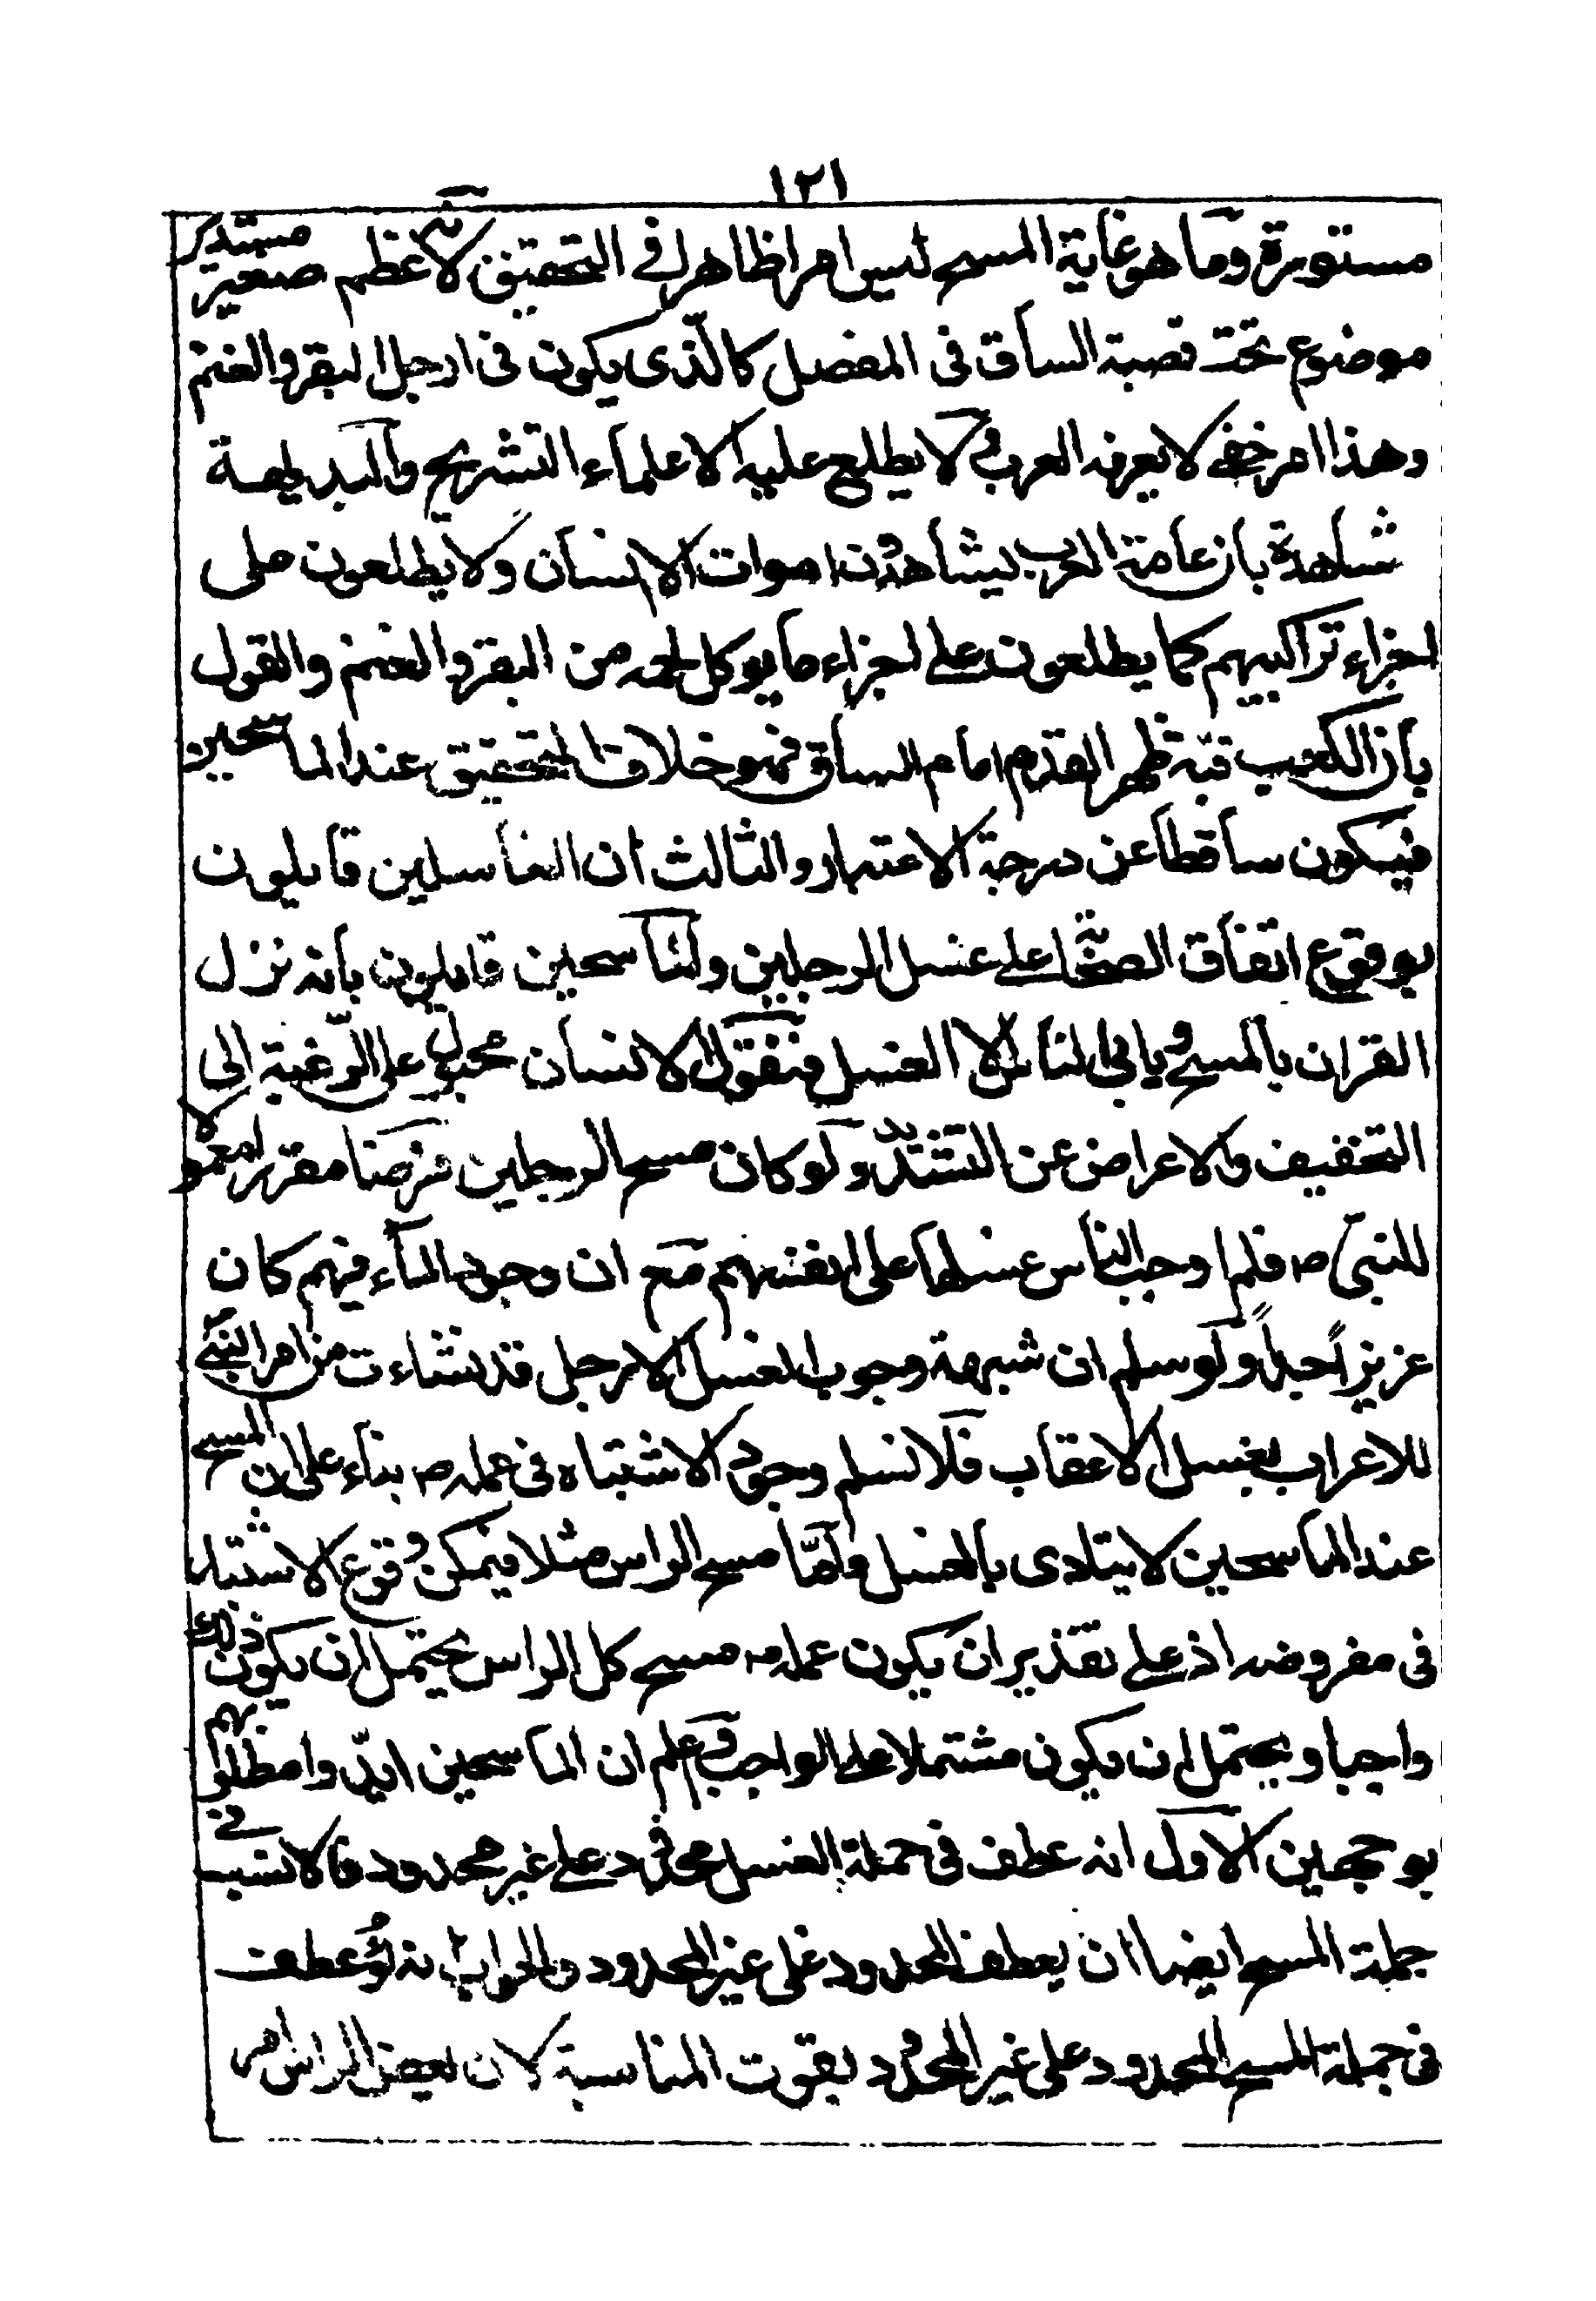 ١٢١
مستورة وما هو غاية المسح ليس امرا ظاهرا فى التحقيق لانه عظم صغير مستدير
موضوع تحت قصبة الساق فى المفصل كالّذى يكون فى ارجل البقر والغنم
وهذا امر خفى لا يعرفه العرب و لا يطلع عليه الا علماء التشريح والبديهة
شاهدة بان عامة العرب يشاهدون اموات الانسان ولا يطلعون على
اجزاء تراكيبهم كما يطلعون على اجزاء ما يوكل لحمه من البقر والغنم والقول
بان الكعب قبّة ظهر القدم امام الساق فهو خلاف التحقيق عند الماسحين
فيكون ساقطا عن درجة الاعتبار والثالث ان الغاسلين قايلون
بوقوع اتفاق الصحابة على غسل الرجلين والماسحين قايلون بانه نزل
القران بالمسح ويابى الناس الا الغسل فنقول الانسان مجبول على الرّغبة الى
التخفيف والاعراض عن التشدّد ولو كان مسح الرجلين فرضا مقررا معمولا
للنبىّ ص فلم اوجب الناس غسلهما على انفسهم مع ان وجود الماء فيهم كان
عزيزاً جداً ولو سلم ان شبهة وجوب الغسل الارجل قد نشاءت من امر النبى
للاعراب بغسل الاعقاب فلا نسلم وجود الاشتباه فى عمله ص بناء على ان المسح
عند الماسحين لا يتادى بالغسل وامّا مسح الراس مثلا فيمكن وقوع الاشتباه
فى مفروضه اذ على تقدير ان يكون عمله ص مسح كل الراس يحتمل ان يكون ذلك
واجبا و يحتمل ان يكون مشتملا على الواجب و علم ان الماسحين ايّدوا مطلوبهم
بوجهين الاول انه عطف فى جملة الغسل محدود على غير محدود فالانسب فى
جملة المسح ايضا ان يعطف المحدود على غير المحدود والجواب انه لو عطف
فى جملة المسح المحدود على غير المحدود بقوت المناسبة لان بعض الراس امر